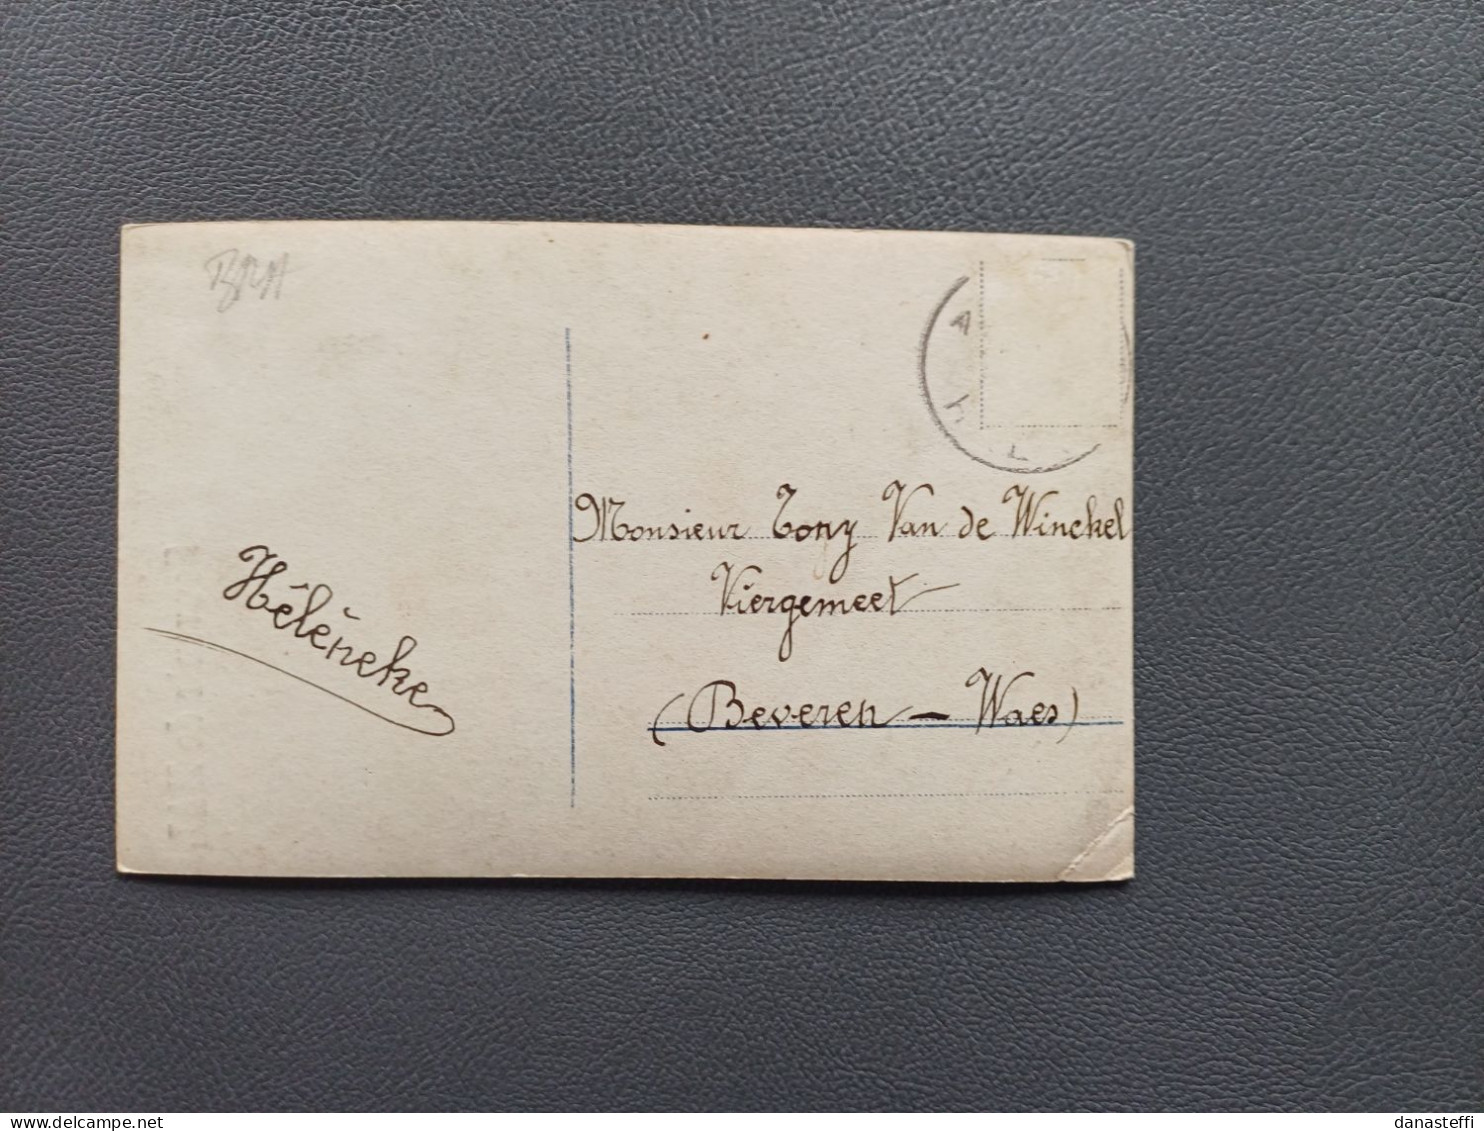 Hélèneke
Monsieur Tony Van de Winckel
Viergemeet
(Beveren - Waes)
danasteffi